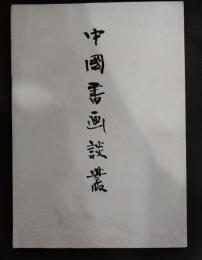 中國書画談叢